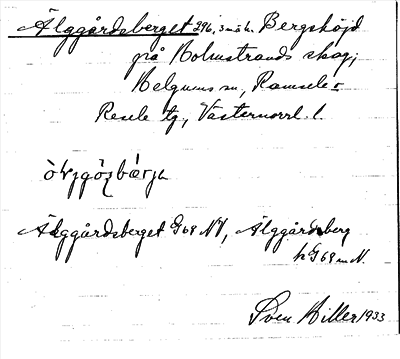 Älggårdsberget 296, 3 m ö h. Bergshöjd
på Holmstrands skog;
Helgums sn, Ramsele o.
Resele tg, Västernorrl. l.
Älggårdsberget G 68 NV, Älggårdsberg
h G 68 m N.
Sven Hiller 1933